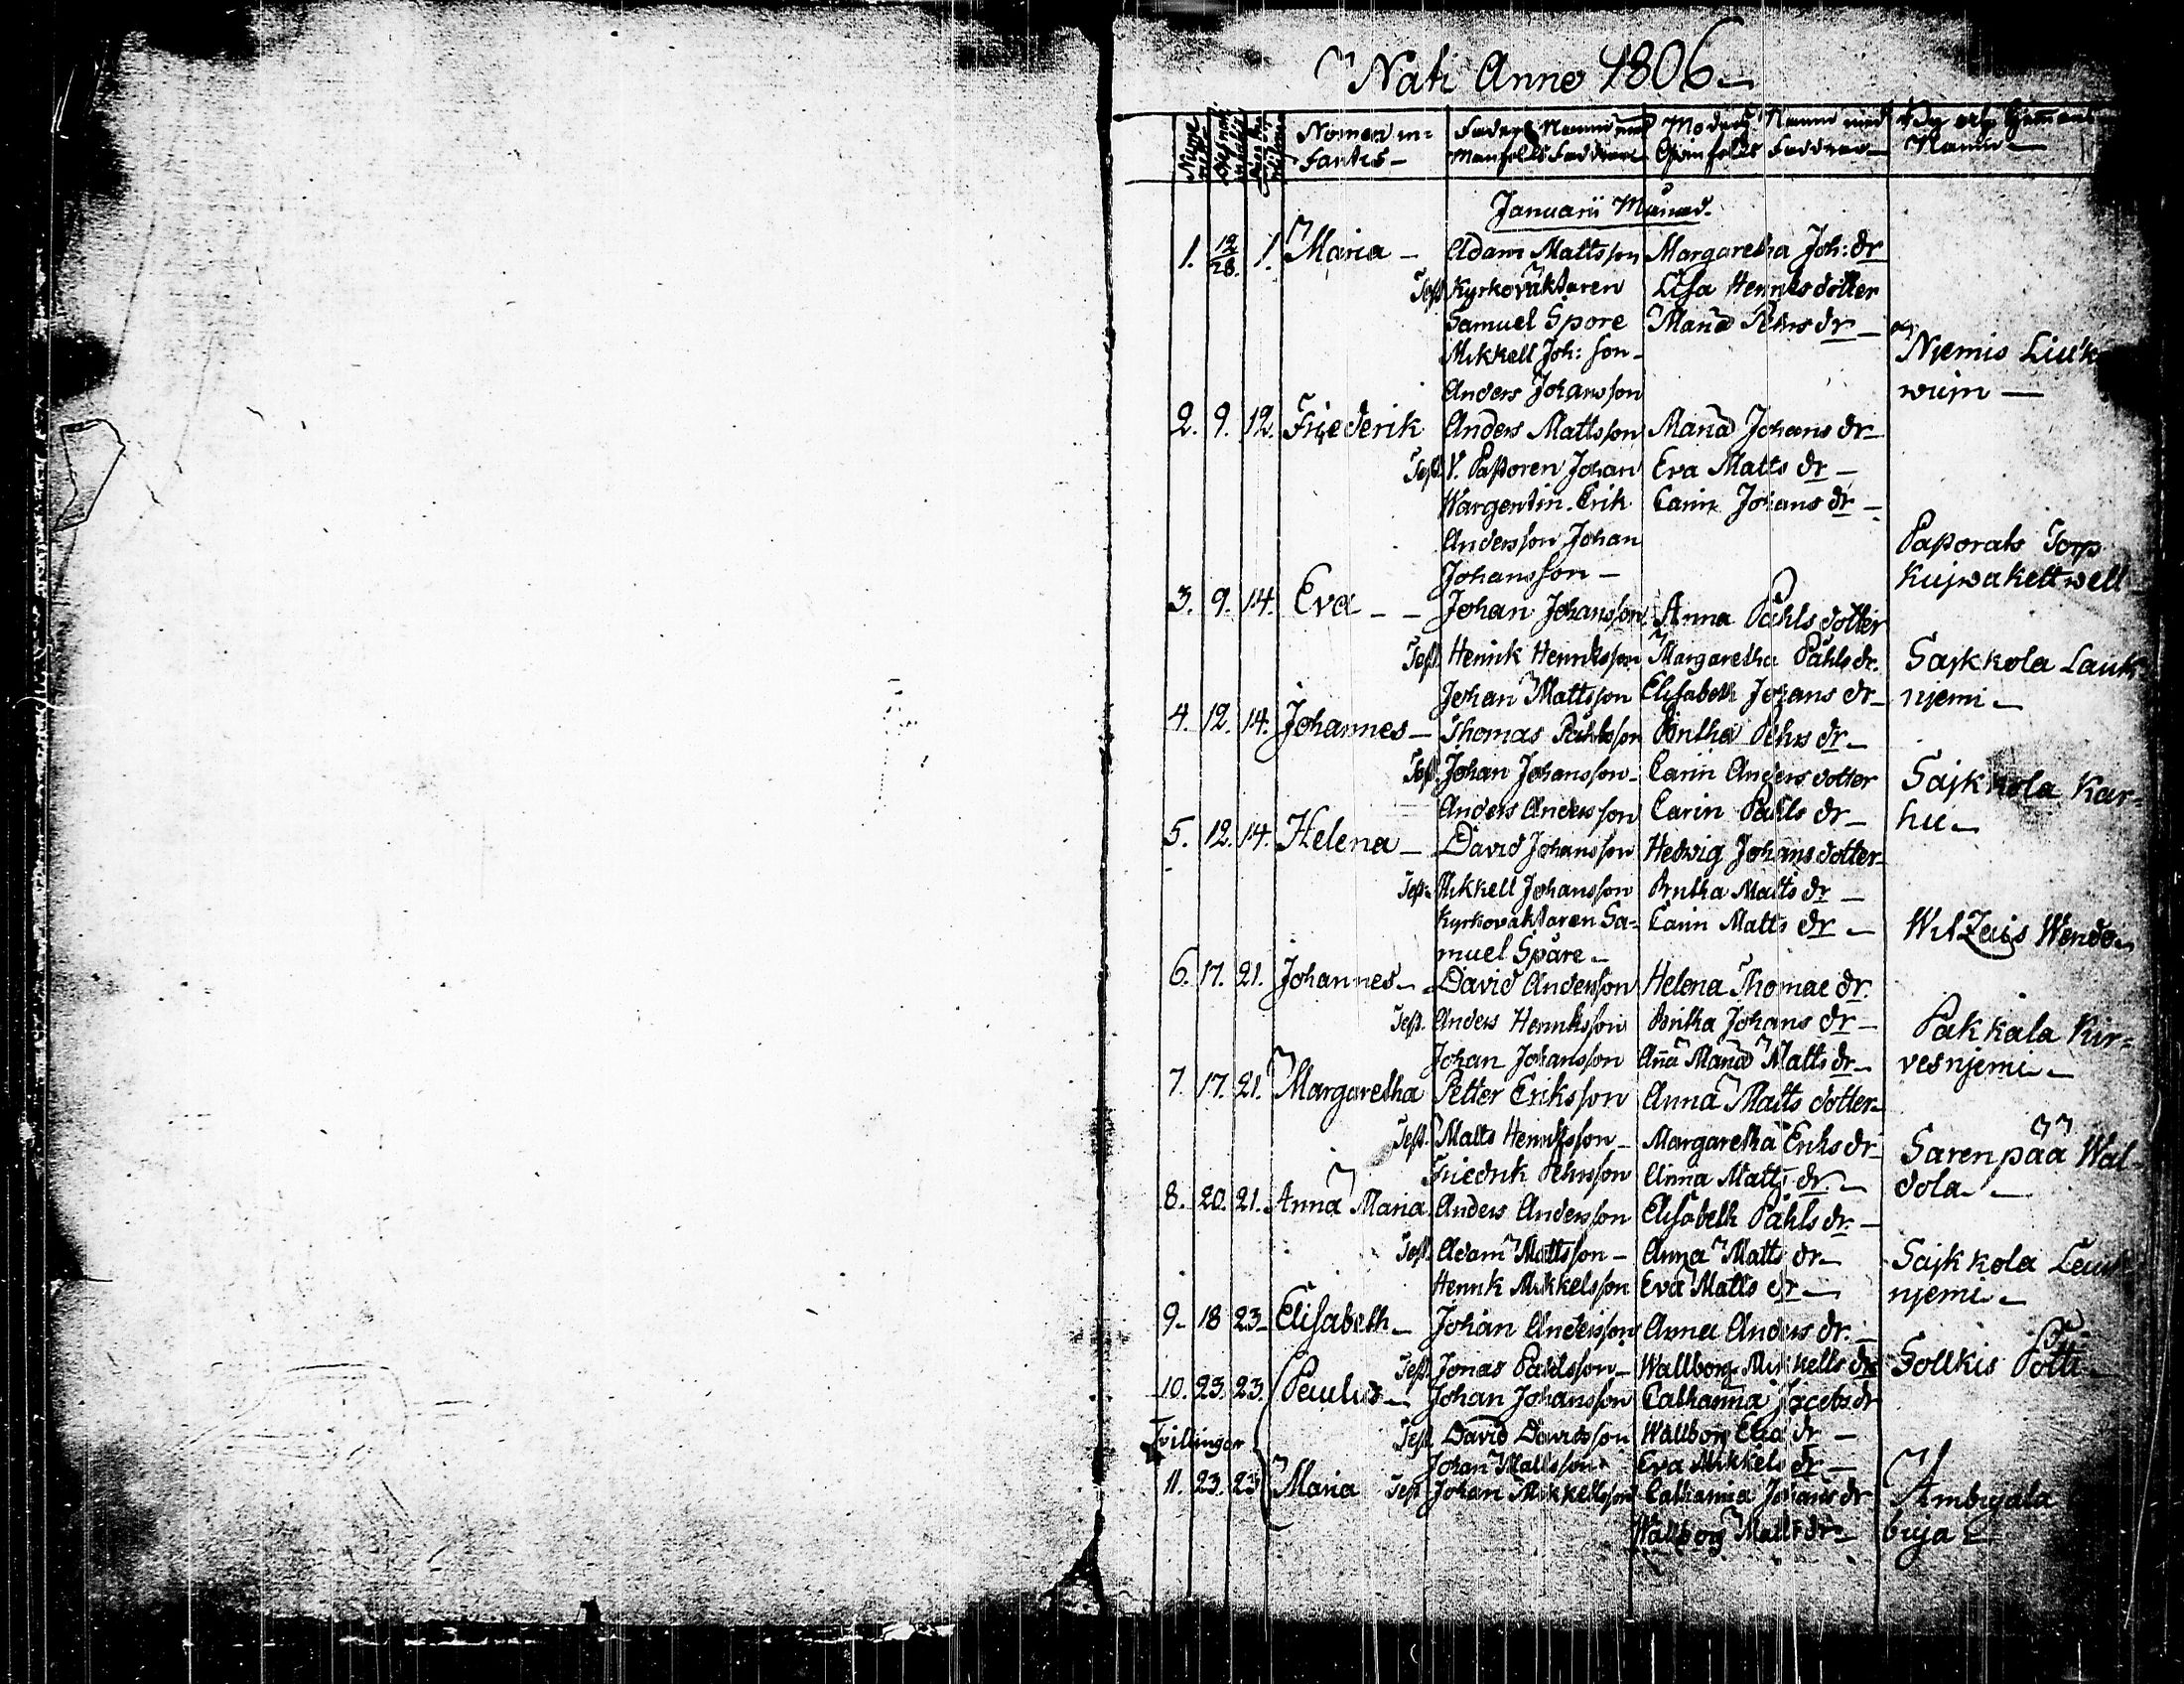 Nati Anno 1806
Nomen in=
fantis
Faders Namn med
Manfolks Faddrar
Moders Namn med
Qvinfolks Faddrar
By och Hemmans
Namn
Januarii Månad.
1. 12/28. 1. Maria Adam Mattsson Margaretha Joh: dr
Test. Kyrkováktaren Lisa Henriksdotter
Samuel Spore Maria Pehrs dr
Mikkell Joh: son Njemis Liuk
Anders Johansson
2. 9. 12. Friederik Anders Mattsson Maria Johans dr
Test. V. Pastoren Johan Eva Matts dr
Wargentin. Erik Carin Johans dr
Andersson Johan Pastorats Torp
Johansson Kujwakettwell
3. 9. 14. Eva Johan Johansson Anna Påhls dotter
Test. Henrik Henriksson Margaretha Påhls dr. Sajkkola Lauk
Johan Mattsson Elisabeth Johans dr njemi
4. 12. 14. Johannes Thomas Påhlsson Britha Pehrs dr
Test. Johan Johansson Carin Anders dotter Sajkkola Kar=
Anders Andersson Carin Påhls dr hu
5. 12. 14. Helena David Johansson Hedwig Johans dotter
Test. Mikkell Johansson Britha Matts dr
Kyrkovaktaren Sa= Carin Matts dr
muel Spåre
6. 17. 21. Johannes David Andersson Helena Thomae dr.
Test. Anders Henriksson Britha Johans dr Pakkala Kir=
Johan Johansson Aña Maria Matts dr vesnjemi
7. 17. 21. Margaretha Petter Eriksson Anna Matts dotter
Test. Matts Henriksson Margaretha Eriks dr Sarenpää Wal=
Friedrik Pehrsson Anna Matts dr dola
8. 20. 21. Anna Maria Anders Andersson Elisabeth Påhls dr.
Test. Adam Mattsson Anna Matts dr Sajkkola Lauk
Henrik Mikkelsson Eva Matts dr njemi
9 18 23 Elisabeth Johan Andersson Anna Anders dr.
Test. Jonas Påhlsson Wallborg Mikkells dr Sollkis Potti
10. 23. 23. Paulus Johan Johansson Catharina Jacobs dr
Tvillingar Test. David Davidsson Wallborg Elia dr
Johan Mattsson Eva Mikkels dr
11. 23. 23 Maria Test Johan Mikkellsson Catharina Johans dr
Wallborg Matts dr